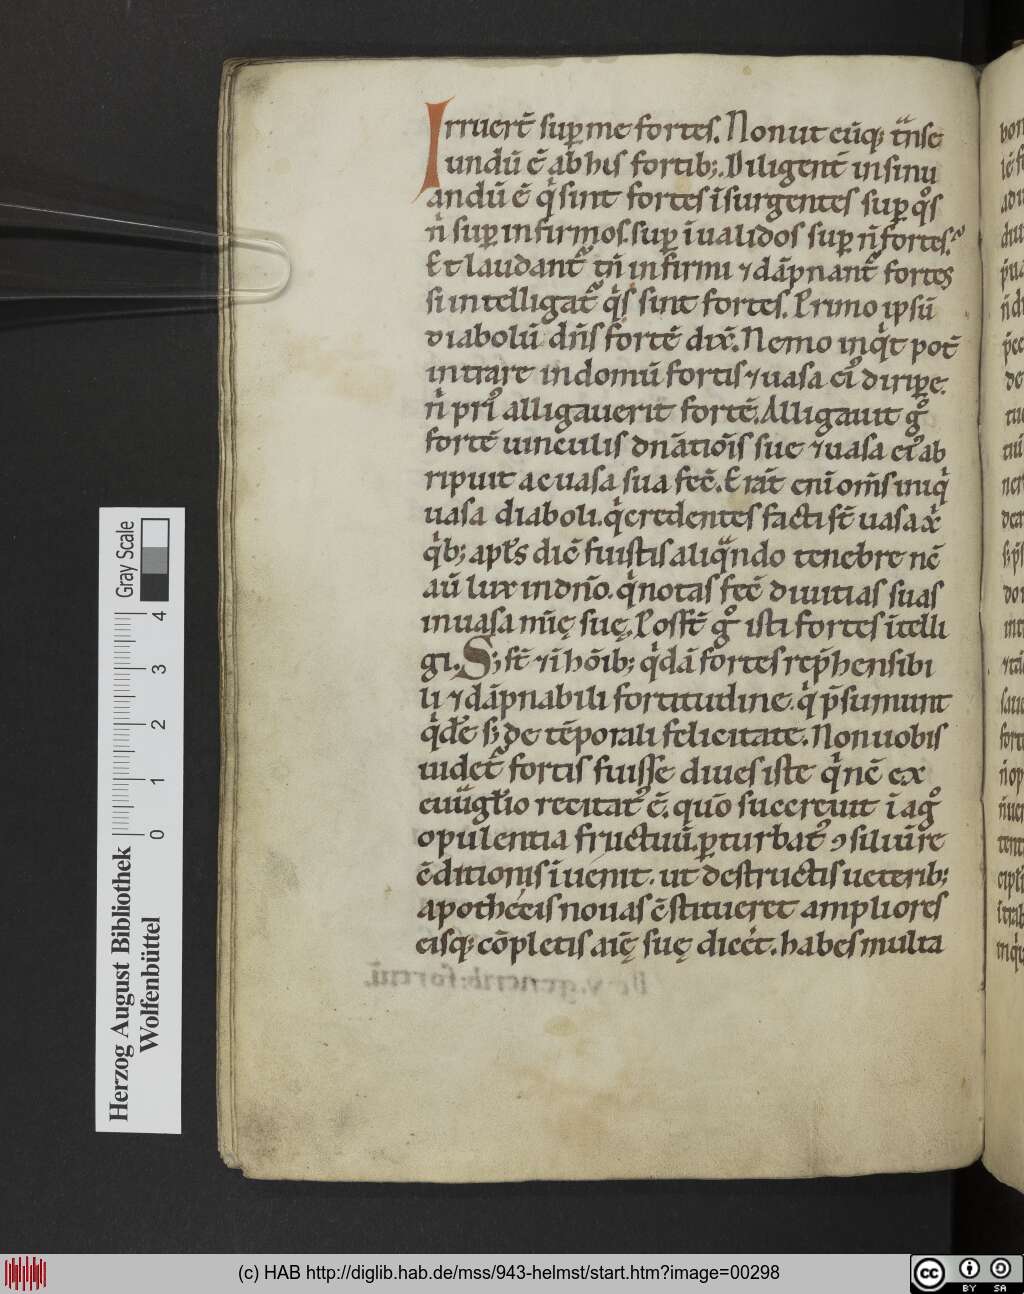 Irruer̄t suꝑ me fortes. Non ut cūq; t̄nse
undū ē ab his fortib;. Diligent̄ insinu
andū ē qͥ sint fortes īsurgentes suꝑ qͦs
n̄ suꝑ infirmos. suꝑ īualidos suꝑ n̄ fortes.
Et laudant᷑ tn̄ infirmi ⁊ dāpnant᷑ fortes
si intelligat᷑ qͥs sint fortes. Primo ipsū
diabolū dn̄s fortē dix̄. Nemo inqͥt pot̄
intrare in domū fortis ⁊ uasa ei᷒ diriꝑe.
nͥ pri᷒ alligauerit fortē. Alligauit gͦ
fortē uinculis dn̄atiōis sue ⁊ uasa ei᷒ ab
ripuit ac uasa sua fec̄. Erāt enī om̄s iniqͥ
uasa diaboli. qͥ credentes facti st̄ uasa xͥ
qͥb; apl̄s dic̄ fuistis aliqͣndo tenebre nc̄
aū lux in dn̄o. qͥ notas fec̄ diuitias suas
in uasa mīę suę. Posst̄ gͦ isti fortes ītelli
gi. S; st̄ ⁊ in hōib; qͥdā fortes rep̄hensibi
li ⁊ dāpnabili fortitudine. qͥ p̄sumunt
qͥdē s; de tēporali felicitate. Non uobis
uidet᷑ fortis fuisse diues iste qͥ nc̄ ex
euūgl̄io recitat᷒ ē. quō succreuit ī agͦ
opulentia fructuū. ꝑturbat᷒ ꝯsiluī re
c̄ditionis īuenit. ut destructis ueterib;
apothecis nouas c̄stitueret ampliores
eisq; cōpletis aīę suę dicet. habes multa
Herzog August Bibliothek
Wolfenbüttel
Gray Scale
0 1 2 3 4
(c) HAB http://diglib.hab.de/mss/943-helmst/start.htm?image=00298
cc BY SA